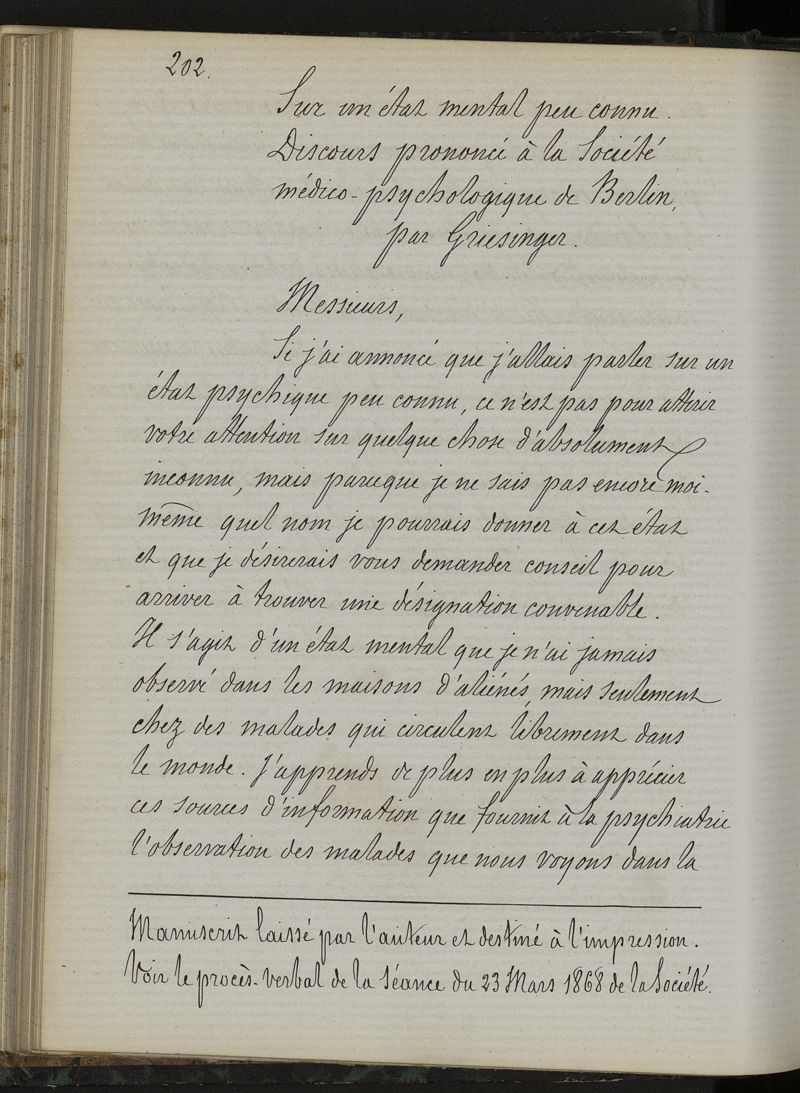 202.
Sur un état mental peu connu.
Discours prononcé à la Société
médico-psychologique de Berlin,
par Griesinger.
Messieurs,
Si j'ai annoncé que j'allais parler sur un
état psychique peu connu, ce n'est pas pour attirer
votre attention sur quelque chose d'absolument
inconnu, mais parceque je ne sais pas encore moi-
même quel nom je pourrais donner à cet état
et que je désirerais vous demander conseil pour
arriver à trouver une désignation convenable.
Il s'agit d'un état mental que je n'ai jamais
observé dans les maisons d'aliénés, mais seulement
chez des malades qui circulent librement dans
le monde. J'apprends de plus en plus à apprécier
ces sources d'information que fournit à la psychiatrie
l'observation des malades que nous voyons dans la
Manuscrit laissé par l'auteur et destiné à l'impression.
Voir le procès-verbal de la séance du 23 Mars 1868 de la Société.